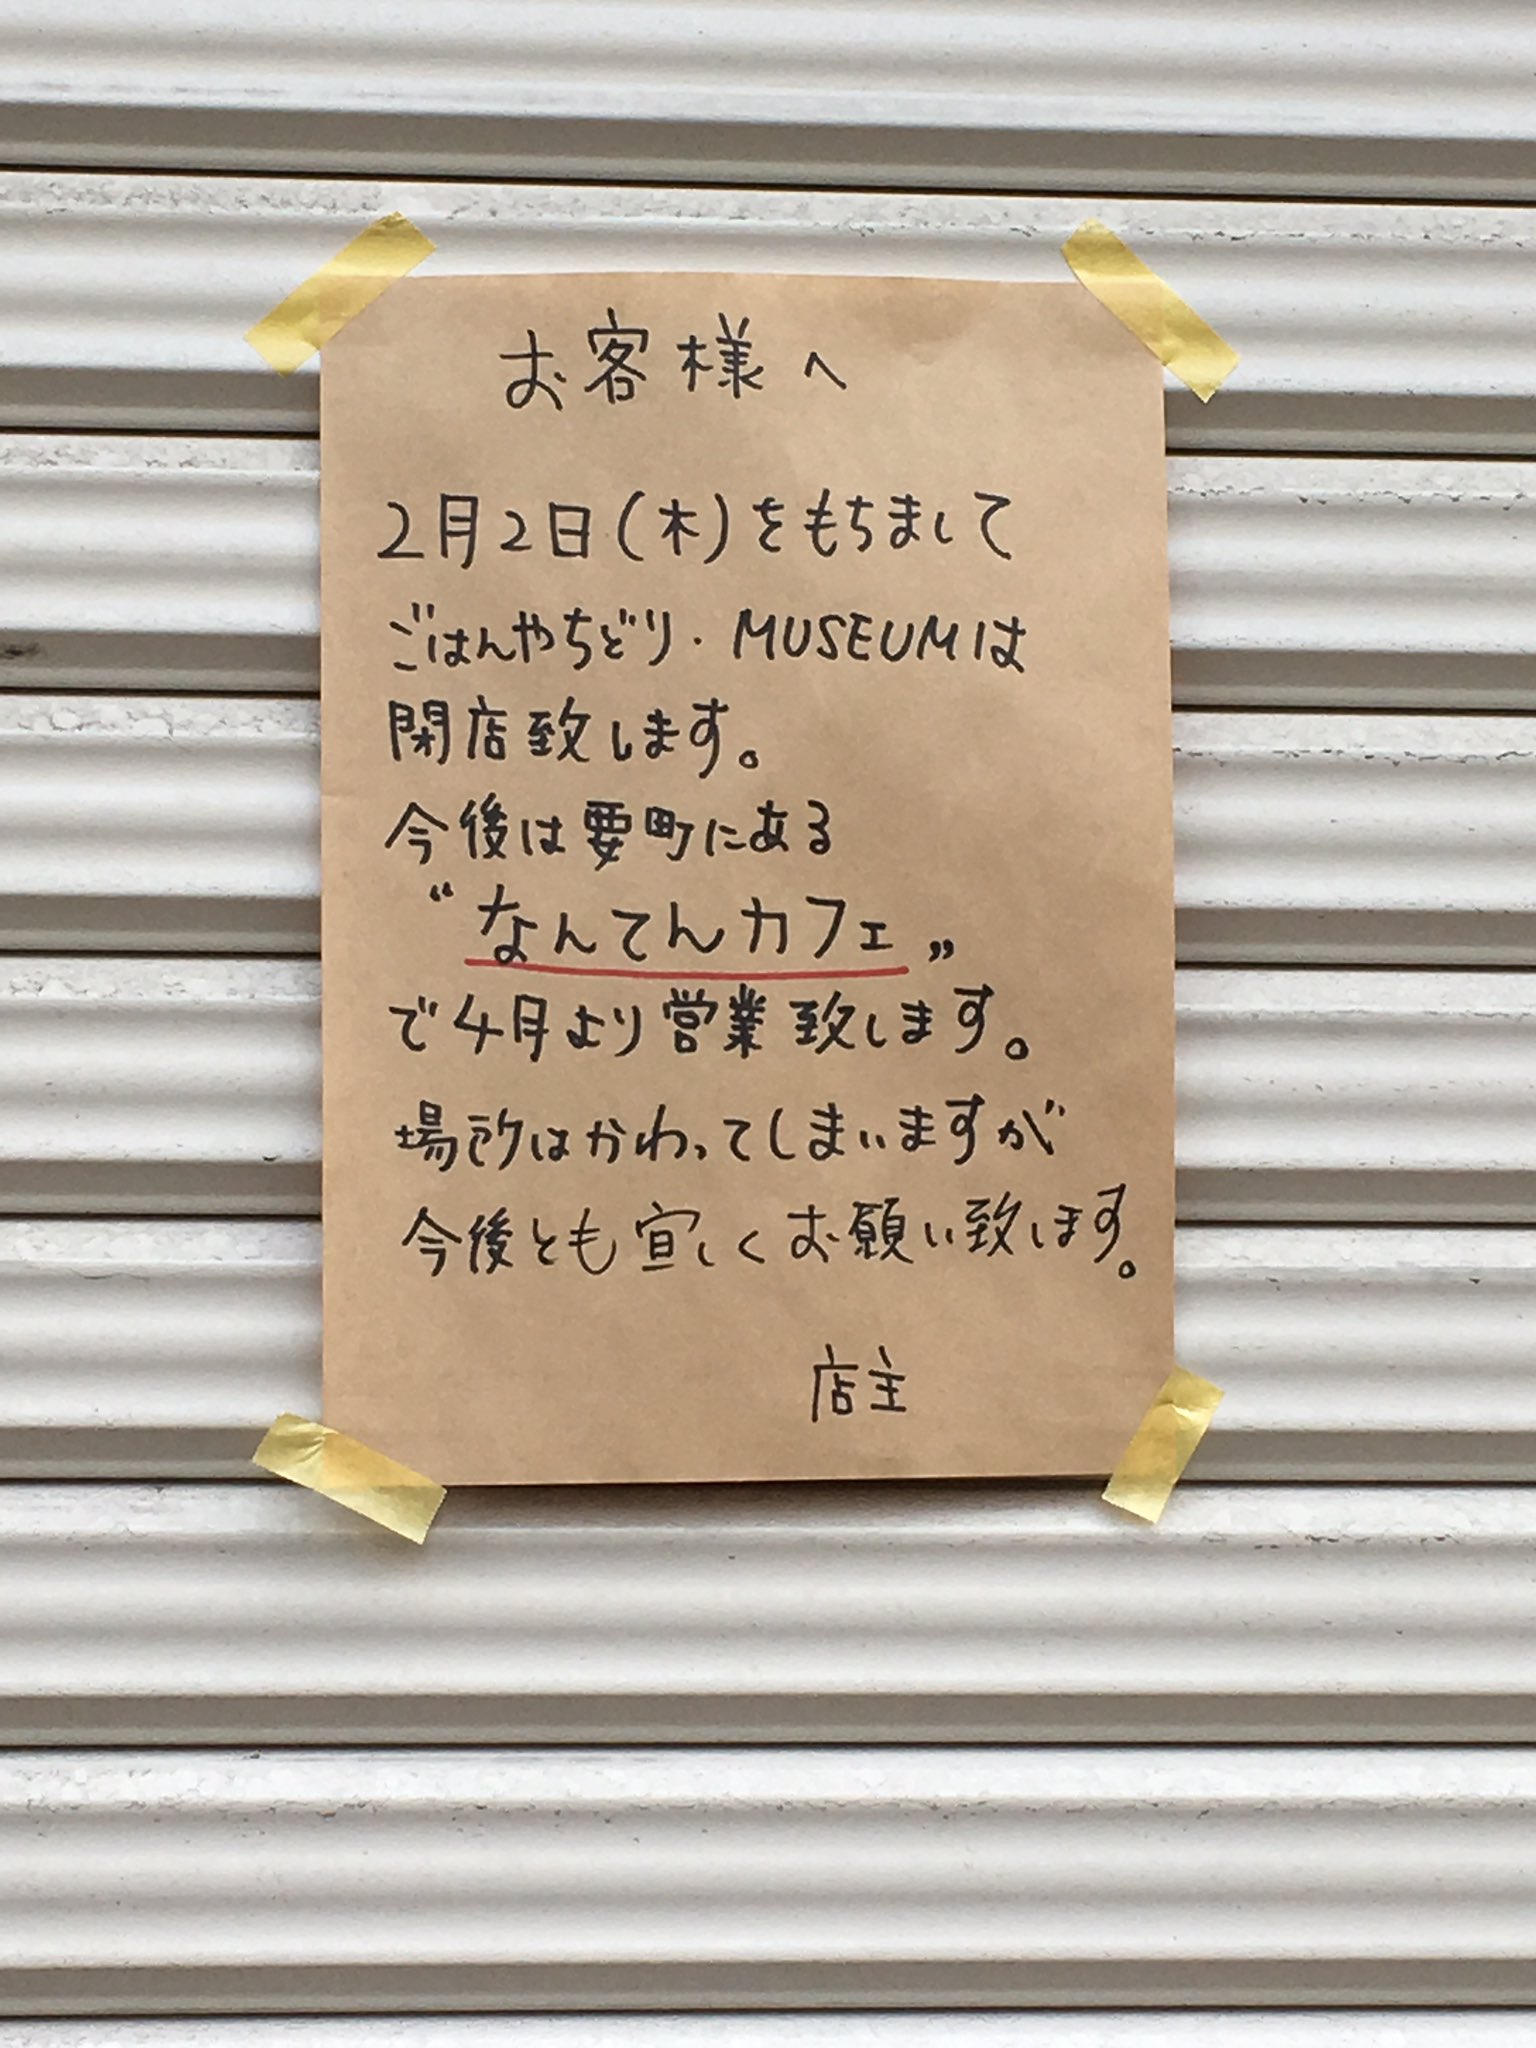 お客様へ
2月2日(木)をもちまして
ごはんやちどり・MUSEUMは
閉店致します。
今後は要町にある
“なんてんカフェ„
で4月より営業致します。
場所はかわってしまいますが
今後とも宜しくお願い致します。
店主